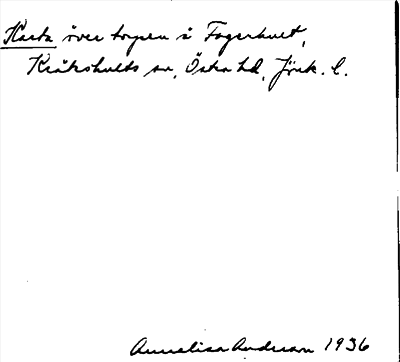 Karta över torpen å Fagerhult,
Kråkshults sn, Östra hd, Jönk. l.
Annelisa Anderson 1936